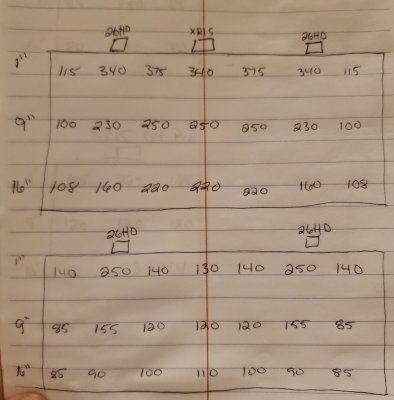 26HD XR15 26HD
1" 115 340 375 340 375 340 115
9" 100 230 250 250 250 230 100
16" 108 160 220 220 220 160 108
26HD 26HD
1" 140 250 140 130 140 250 140
9" 85 155 120 120 120 155 85
16" 85 90 100 110 100 90 85